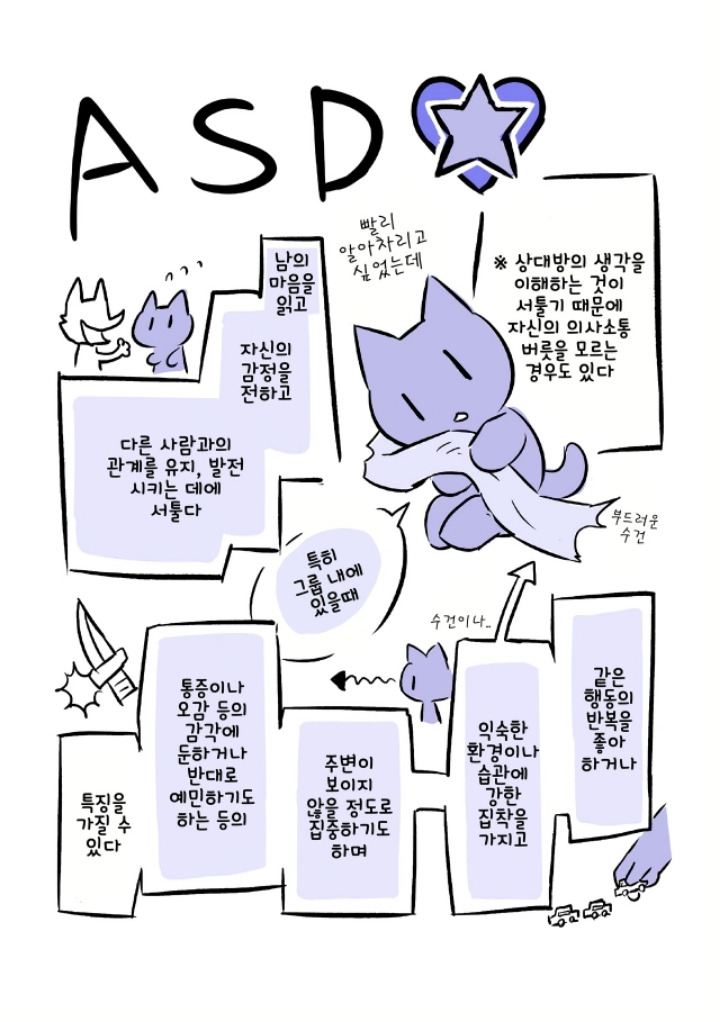 ASD
빨리
알아차리고
싶었는데
※ 상대방의 생각을
이해하는 것이
서툴기 때문에
자신의 의사소통
버릇을 모르는
경우도 있다
남의
마음을
읽고
자신의
감정을
전하고
다른 사람과의
관계를 유지, 발전
시키는 데에
서툴다
부드러운
수건
특히
그룹 내에
있을때
수건이나..
같은
행동의
반복을
좋아
하거나
익숙한
환경이나
습관에
강한
집착을
가지고
주변이
보이지
않을 정도로
집중하기도
하며
통증이나
오감 등의
감각에
둔하거나
반대로
예민하기도
하는 등의
특징을
가질 수
있다